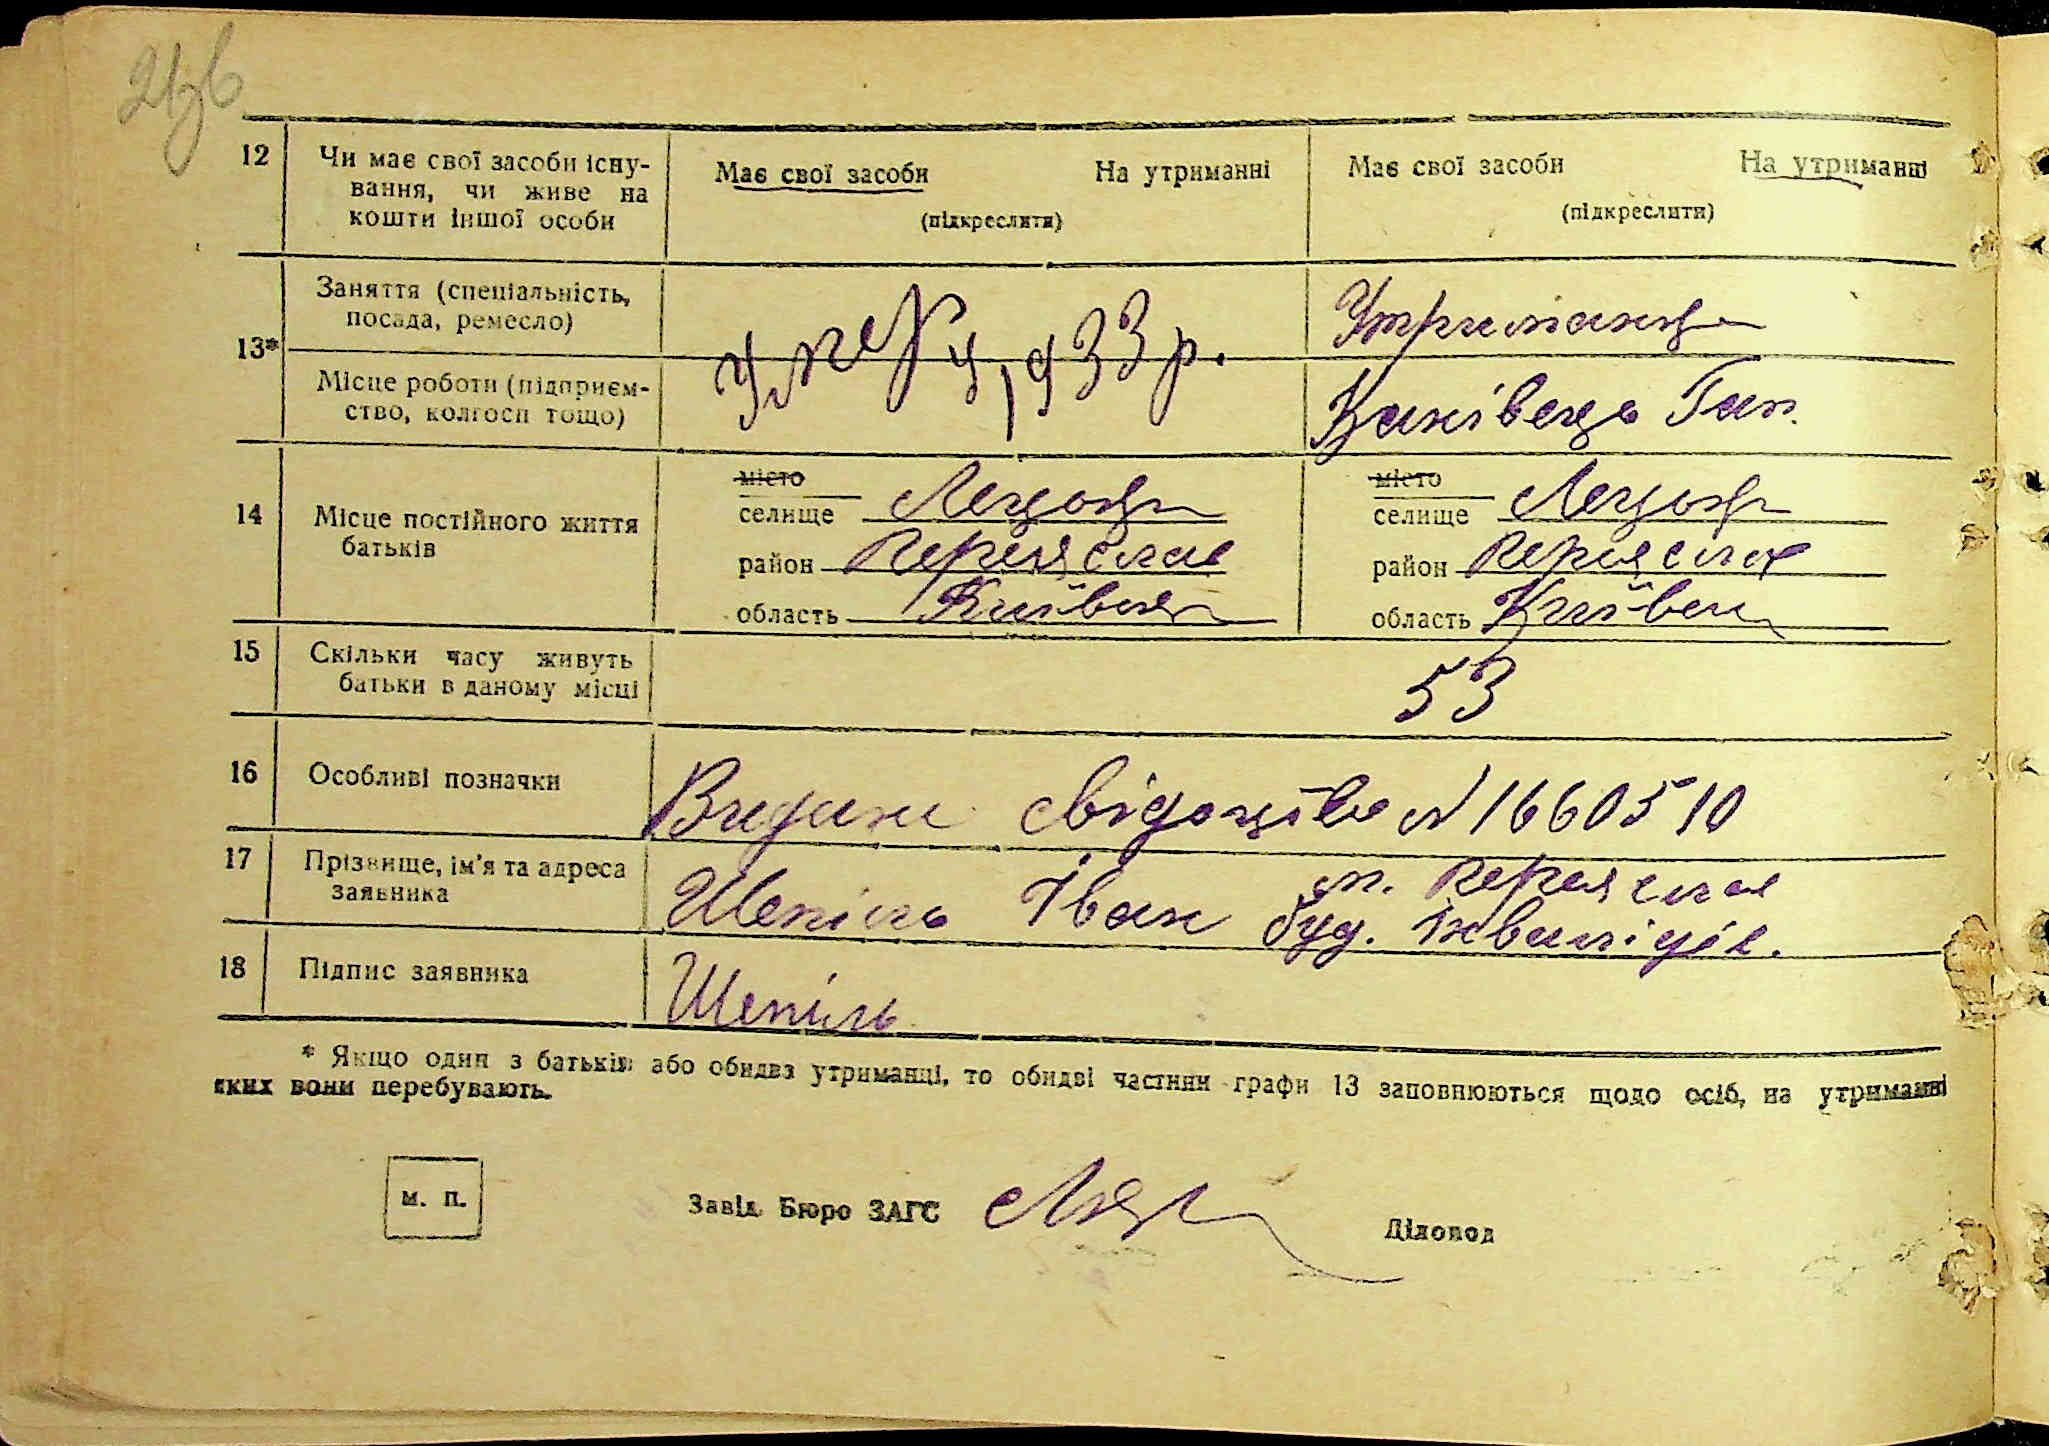 12 Чи має свої засоби існу-
вання, чи живе на
кошти іншої особи
Має свої засоби На утриманні
(підкреслити)
Має свої засоби На утриманні
(підкреслити)
13* Заняття (спеціальність,
посада, ремесло)
Місце роботи (підприєм-
ство, колгосп тощо)
Умер у 1933 р.
Утриманця
14 Місце постійного життя
батьків
місто
селище Лецьки
район Переяслав
область Київська
місто
селище Лецьки
район Переяслав
область Київська
15 Скільки часу живуть
батьки в даному місці
53
16 Особливі позначки
Видане свідоцтво N 1660510
17 Прізвище, ім'я та адреса
заявника
Шепіль Іван м. Переяслав
буд. Інвалідів.
18 Підпис заявника
Шепіль
* Якщо один з батьків або обидва утриманці, то обидві частини графи 13 заповнюються щодо осіб, на утриманні
яких вони перебувають.
м. п.
Завід. Бюро ЗАГС
Діловод